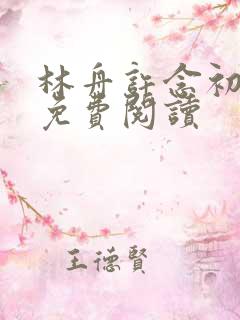 林舟許念初
免費閱讀
王德賢